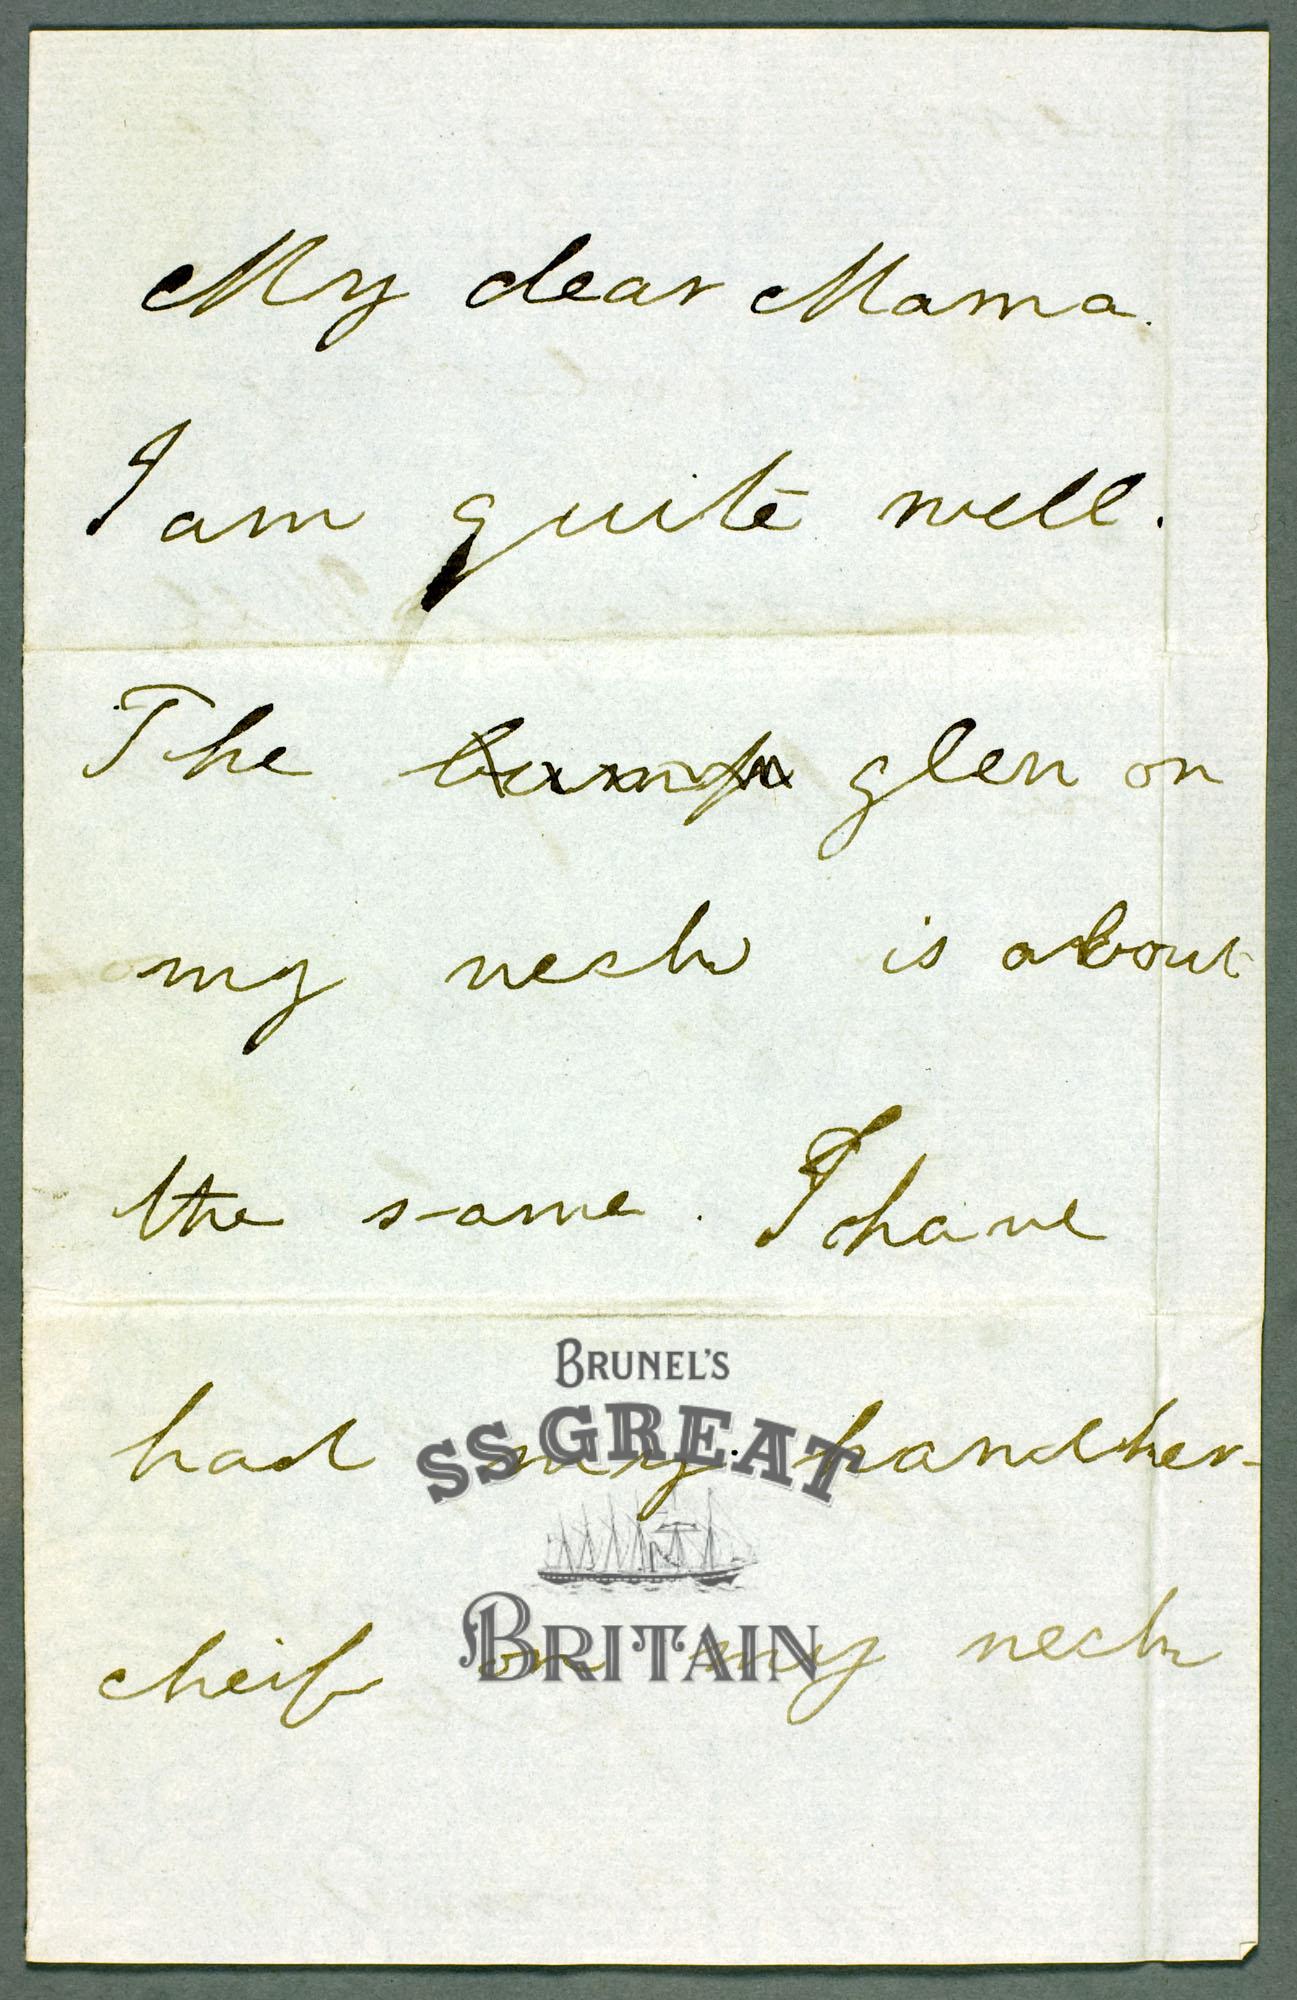 My dear Mama.
I am quite well.
The bump glen on
my neck is about
the same. I have
BRUNEL'S
had my handker-
SS GREAT
BRITAIN
cheif on my neck